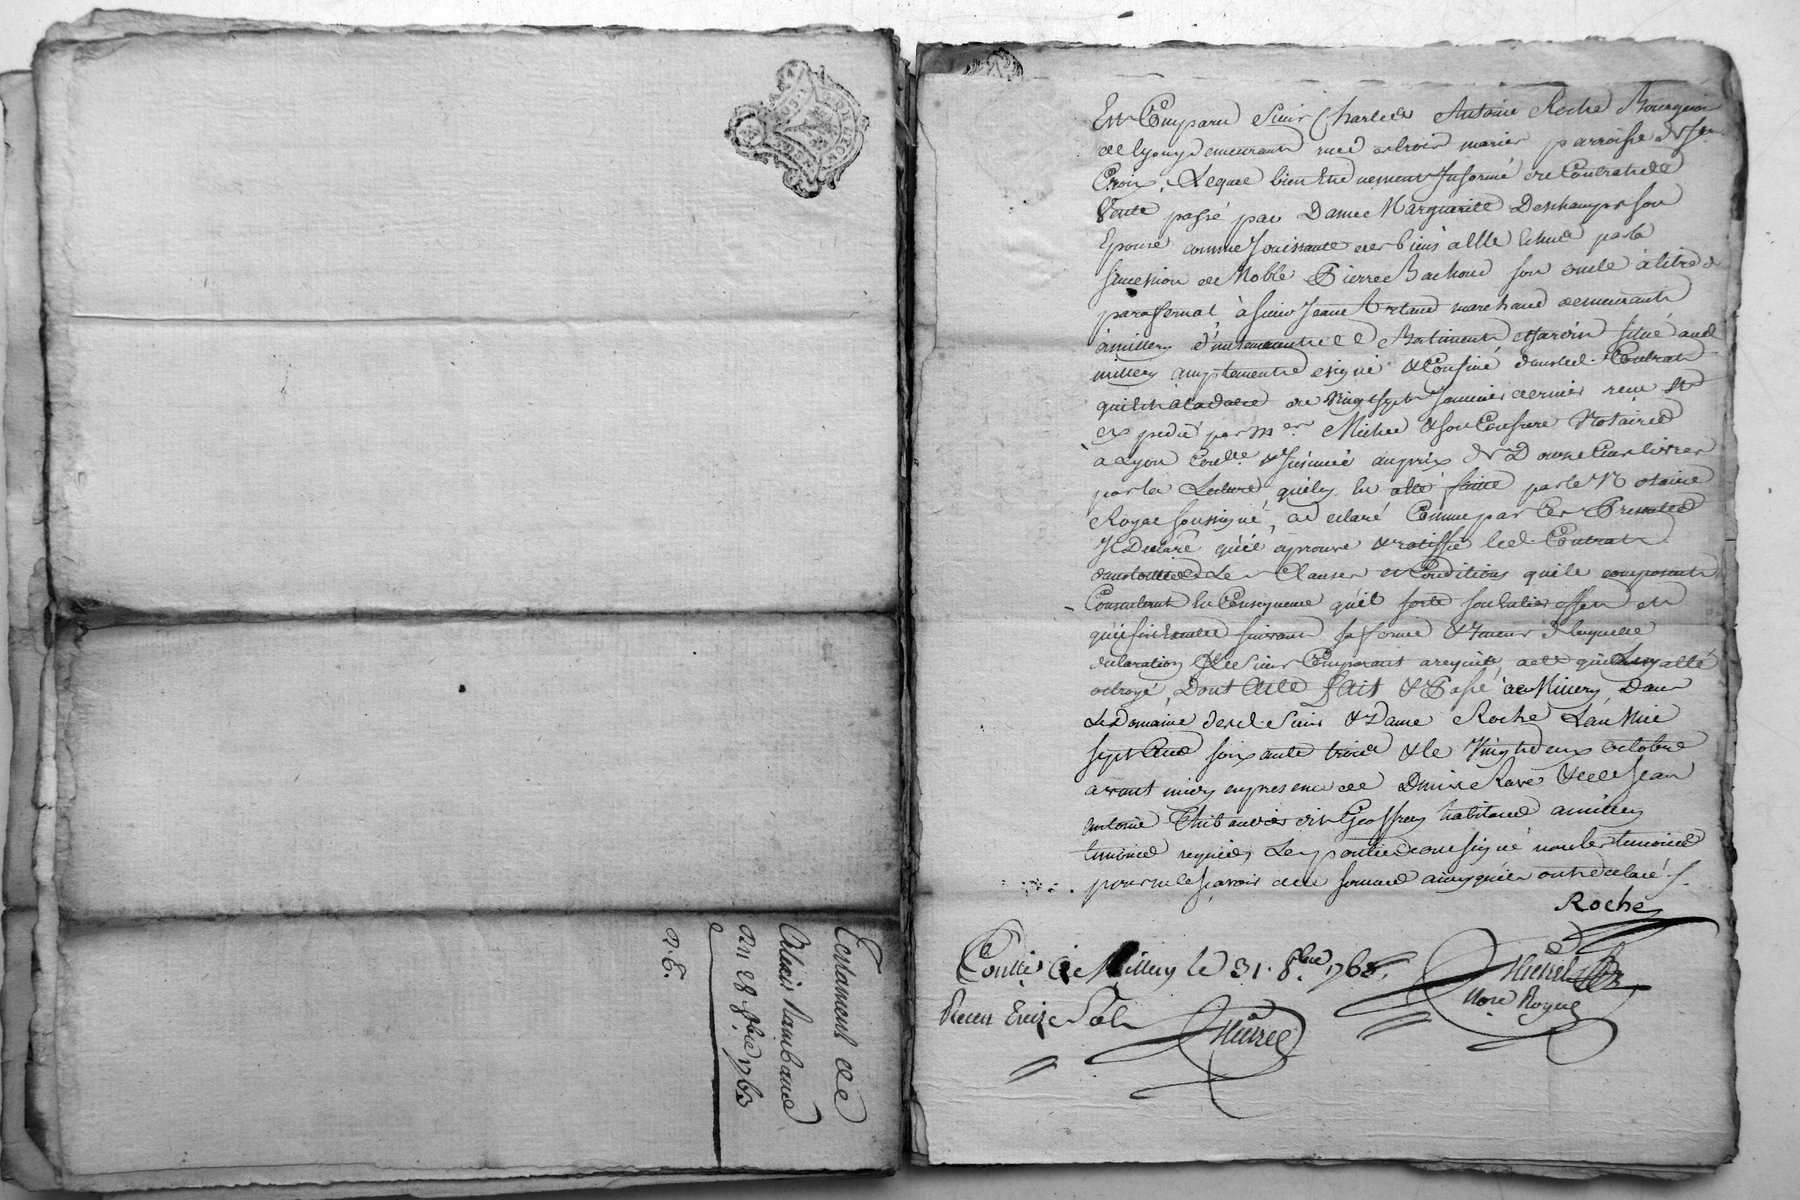 Testament de
Alexis Rambaud
Du 28 9bre 1763
R. E.
Est Comparu Sieur Charles Antoine Roche Bourgeois
de Lyon y demeurant rue des trois maries parroisse de Ste
Croix, Lequel bien et deuement Informé du Contrat de
Vente passé par Dame Marguerite Deschamps son
Epouse comme Jouissante des biens a elle echus par la
succession de Noble Pierre Bachoud son oncle a titre de
parafernal à sieur Jean Artaud marchand demeurant
à millery d'un Batiment et Jardin situé aud
millery amplement designé et Confiné dans led. Contrat
qui est a la datte du Vingt sept Janvier dernier receu et
expedié par Mes Michel et son Confrere Notaires
à Lyon Conllé et Insinué au prix de Douze Cens livres
par la Lecture qu'il luy en a été faitte par le Notaire
Royal soussigné, a declaré Comme par Ces Presentes
Il Declare qu'il aprouve et ratiffie led. Contrat
dans toutes Les Clauses et Conditions qui le composent
Consentant En Consequence qu'il sorte son Entier effet et
qu'il soit Executé suivant sa forme et teneur de laquelle
declaration led Sieur Comparant a requis acte qui Luy a été
octroyé Dont Acte fait et Passé a Millery Dans
Le Domaine desd. Sieur et Dame Roche L'an Mil
sept Cens soixante trois et le Vingt deux octobre
avant midy en presence de Denis Ravé et de Jean
Antoine Thibaudier dit Geoffrey habitans a millery
temoins requis, Les parties ont signé non les temoins
pour ne le sçavoir de ce sommés ainsy qu'ils ont declaré /.
Roche
Conllé a Millery le 31. 8bre 1763.
Receu Treize sols
Thevenet
Nore Royal